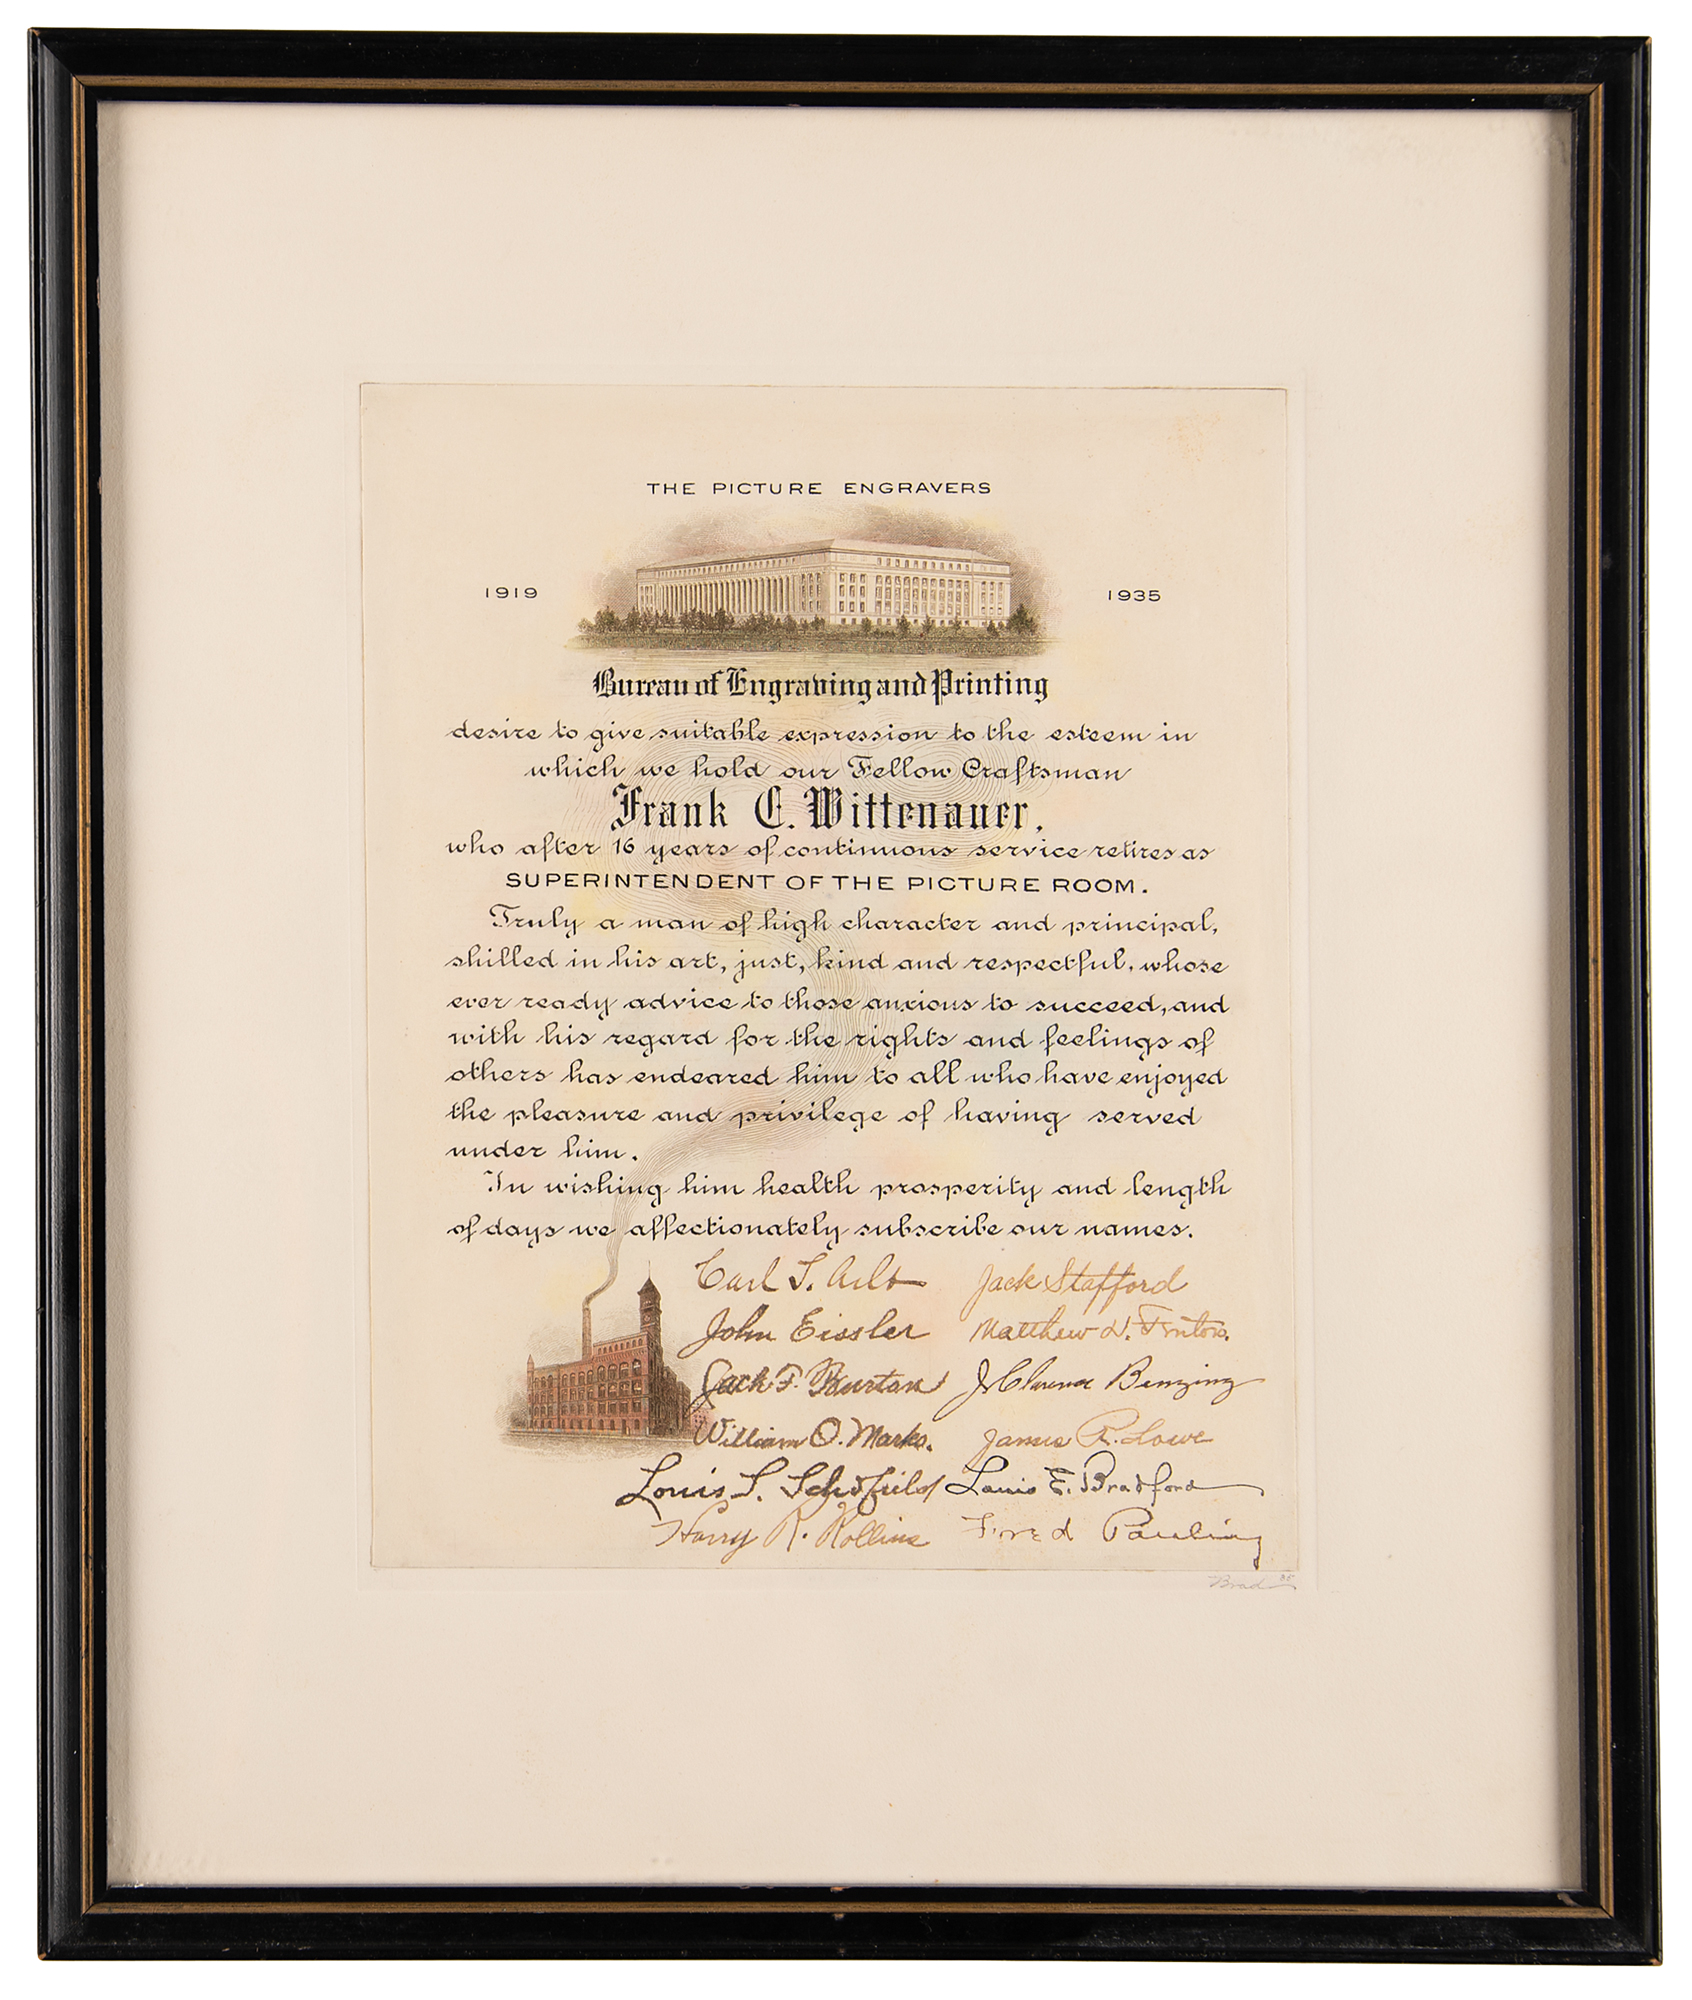 THE PICTURE ENGRAVERS
1919 1935
Bureau of Engraving and Printing
desire to give suitable expression to the esteem in
which we hold our Fellow Craftsman
Frank C. Wittenauer,
who after 16 years of continuous service retires as
SUPERINTENDENT OF THE PICTURE ROOM.
Truly a man of high character and principal,
skilled in his art, just, kind and respectful, whose
ever ready advice to those anxious to succeed, and
with his regard for the rights and feelings of
others has endeared him to all who have enjoyed
the pleasure and privilege of having served
under him.
In wishing him health prosperity and length
of days we affectionately subscribe our names.
Carl T. Arlt Jack Stafford
John Eissler Matthew D. Fenton.
Jack F. Burton J. Clarence Benzing
William O. Marks. James R. Lowe
Louis S. Schofield Louis E. Bradford
Harry R. Rollins Fred Pauling